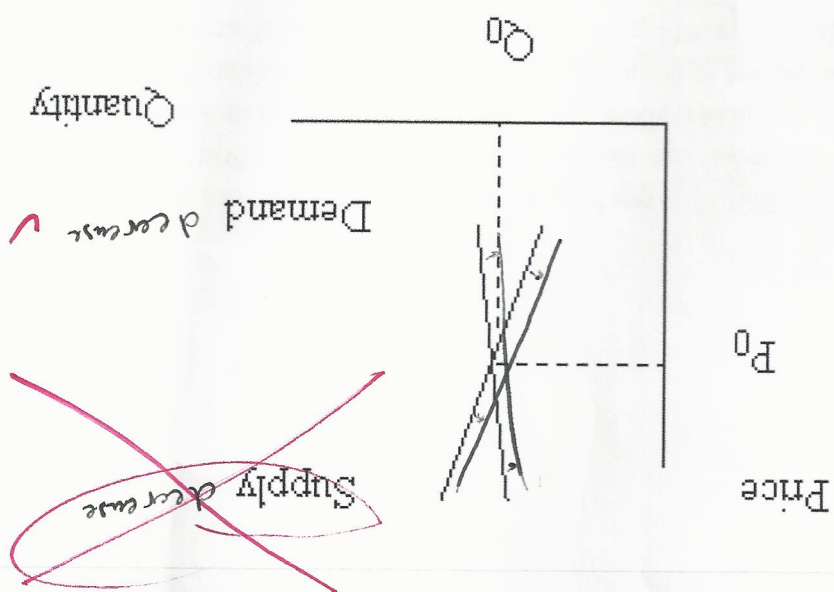 Price
Supply decrease
P0
Demand decrease
Quantity
Q0